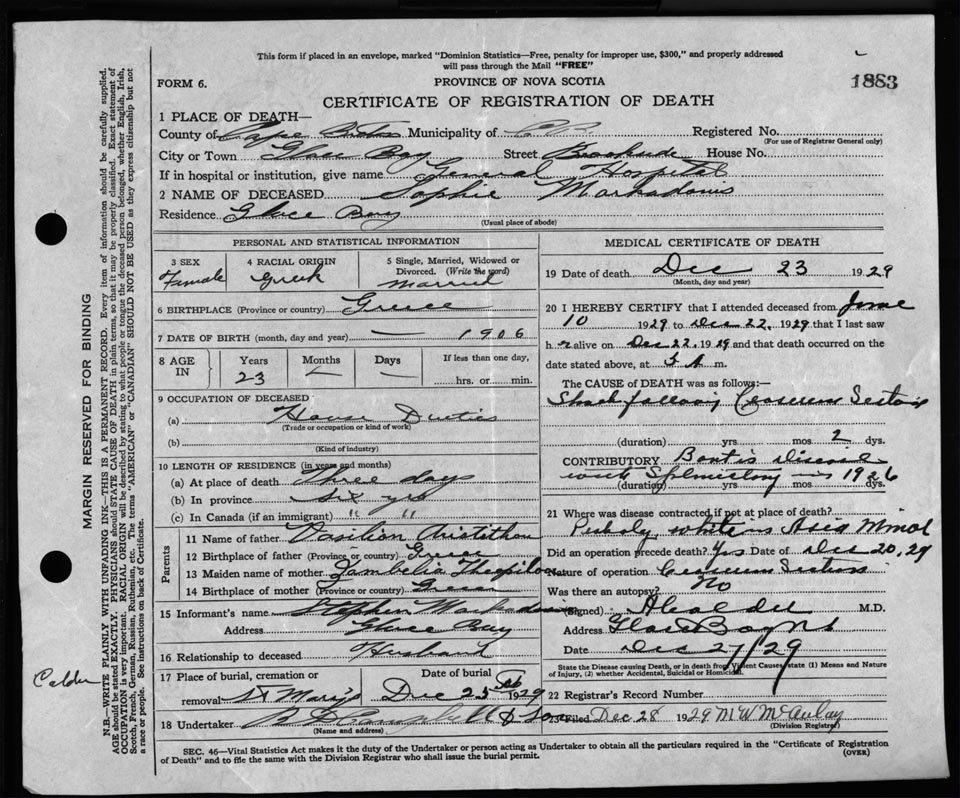 This form if placed in an envelope, marked "Dominion Statistics—Free, penalty for improper use, $300," and properly addressed
will pass through the Mail "FREE"
FORM 6.
PROVINCE OF NOVA SCOTIA
1883
CERTIFICATE OF REGISTRATION OF DEATH
1 PLACE OF DEATH—
County of Cape Breton Municipality of C.B. Registered No.
(For use of Registrar General only)
City or Town Glace Bay Street Brookside House No.
If in hospital or institution, give name General Hospital
2 NAME OF DECEASED Sophie
Residence Glace Bay
(Usual place of abode)
PERSONAL AND STATISTICAL INFORMATION
3 SEX
Female
4 RACIAL ORIGIN
Greek
5 Single, Married, Widowed or
Divorced. (Write the word)
Married
6 BIRTHPLACE (Province or country) Greece
7 DATE OF BIRTH (month, day and year) — 1906
8 AGE IN
Years
23
Months
—
Days
—
If less than one day,
hrs. or min.
9 OCCUPATION OF DECEASED
(a) House Duties
(Trade or occupation or kind of work)
(b)
(Kind of industry)
10 LENGTH OF RESIDENCE (in years and months)
(a) At place of death Three days
(b) In province Six yrs
(c) In Canada (if an immigrant) " "
Parents
11 Name of father
12 Birthplace of father (Province or country) Greece
13 Maiden name of mother
14 Birthplace of mother (Province or country) Greece
15 Informant's name Stephen
Address Glace Bay
16 Relationship to deceased Husband
17 Place of burial, cremation or
removal St Mary's
Date of burial
Dec 25 1929
18 Undertaker
(Name and address)
MEDICAL CERTIFICATE OF DEATH
19 Date of death Dec 23 1929
(Month, day and year)
20 I HEREBY CERTIFY that I attended deceased from June
10 1929 to Dec 22, 1929 that I last saw
h r alive on Dec 22, 1929 and that death occurred on
date stated above, at 3 A m.
The CAUSE of DEATH was as follows:—
Shock following Ceasarean Section
(duration) yrs. mos 2 dys.
CONTRIBUTORY Bantis Disease
with Splenectomy in 1926
(duration) yrs. mos. dys.
21 Where was disease contracted, if not at place of death?
Probably while in Asia Minor
Did an operation precede death? Yes Date of Dec 20, 29
Nature of operation Ceasarean Section
Was there an autopsy? No
(Signed) M.D.
Address Glace Bay NS
Date Dec 27/29
State the Disease causing Death, or in death from Violent Causes state (1) Means and Nature
of Injury, (2) whether Accidental, Suicidal or Homicidal.
22 Registrar's Record Number
23 Filed Dec 28 1929 M W McAulay
(Division Registrar)
SEC. 46—Vital Statistics Act makes it the duty of the Undertaker or person acting as Undertaker to obtain all the particulars required in the "Certificate of Registration
of Death" and to file the same with the Division Registrar who shall issue the burial permit.
(OVER)
MARGIN RESERVED FOR BINDING
N.B.—WRITE PLAINLY WITH UNFADING INK—THIS IS A PERMANENT RECORD. Every item of information should be carefully supplied.
AGE should be stated EXACTLY. PHYSICIANS should STATE CAUSE OF DEATH in plain terms, so that it may be properly classified. Exact statement of
OCCUPATION is very important. RACIAL ORIGIN will be described by stating to what people or tongue the deceased person belonged, whether English, Irish,
Scotch, French, German, Russian, Ruthenian, etc. The terms "AMERICAN" or "CANADIAN" SHOULD NOT BE USED as they express citizenship but not
a race or people. See instructions on back of Certificate.
Calder